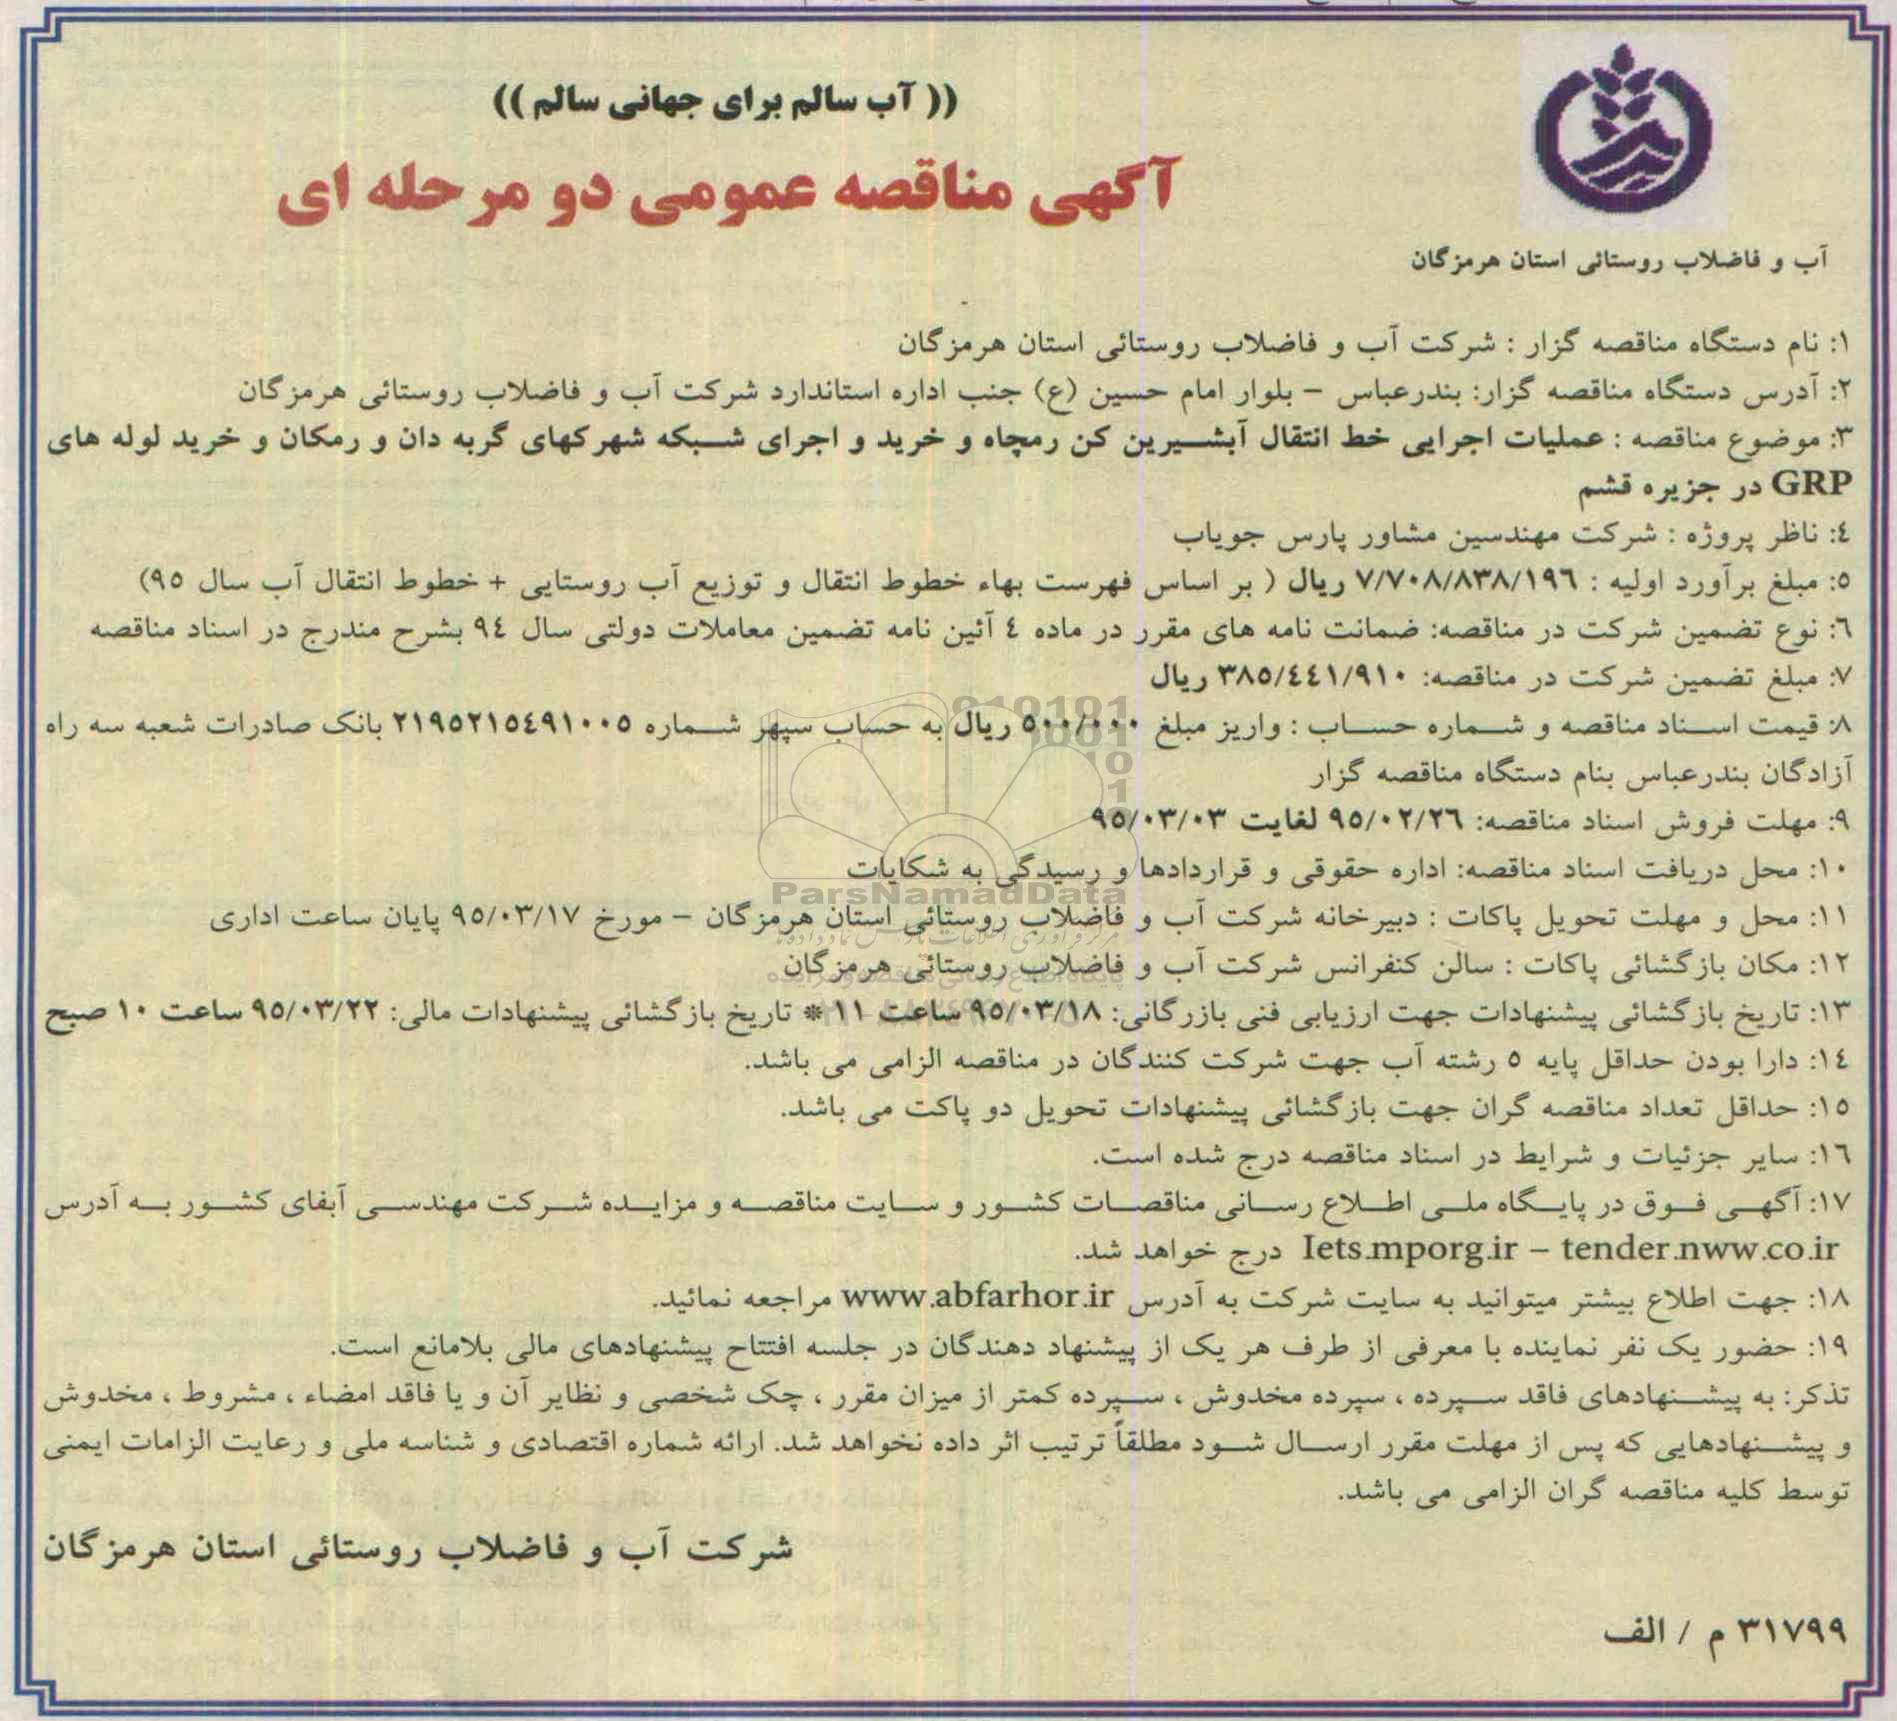 (( آب سالم برای جهانی سالم ))
آگهی مناقصه عمومی دو مرحله ای
آب و فاضلاب روستائی استان هرمزگان
۱: نام دستگاه مناقصه گزار : شرکت آب و فاضلاب روستائی استان هرمزگان
۲: آدرس دستگاه مناقصه گزار: بندرعباس – بلوار امام حسین (ع) جنب اداره استاندارد شرکت آب و فاضلاب روستائی هرمزگان
۳: موضوع مناقصه : عملیات اجرایی خط انتقال آبشیرین کن رمچاه و خرید و اجرای شبکه شهرکهای گربه دان و رمکان و خرید لوله های
GRP در جزیره قشم
٤: ناظر پروژه : شرکت مهندسین مشاور پارس جویاب
٥: مبلغ برآورد اولیه : ۷/۷۰۸/۸۳۸/۱۹٦ ریال ( بر اساس فهرست بهاء خطوط انتقال و توزیع آب روستایی + خطوط انتقال آب سال ۹٥)
٦: نوع تضمین شرکت در مناقصه: ضمانت نامه های مقرر در ماده ٤ آئین نامه تضمین معاملات دولتی سال ۹٤ بشرح مندرج در اسناد مناقصه
۷: مبلغ تضمین شرکت در مناقصه: ۳۸٥/٤٤۱/۹۱۰ ریال
۸: قیمت اسناد مناقصه و شماره حساب : واریز مبلغ ٥۰۰/۰۰۰ ریال به حساب سپهر شماره ۲۱۹٥۲۱٥٤۹۱۰۰٥ بانک صادرات شعبه سه راه
آزادگان بندرعباس بنام دستگاه مناقصه گزار
۹: مهلت فروش اسناد مناقصه: ۹٥/۰۲/۲٦ لغایت ۹٥/۰۳/۰۳
۱۰: محل دریافت اسناد مناقصه: اداره حقوقی و قراردادها و رسیدگی به شکایات
ParsNamadData
۱۱: محل و مهلت تحویل پاکات : دبیرخانه شرکت آب و فاضلاب روستائی استان هرمزگان – مورخ ۹٥/۰۳/۱۷ پایان ساعت اداری
۱۲: مکان بازگشائی پاکات : سالن کنفرانس شرکت آب و فاضلاب روستائی هرمزگان
۱۳: تاریخ بازگشائی پیشنهادات جهت ارزیابی فنی بازرگانی: ۹٥/۰۳/۱۸ ساعت ۱۱ * تاریخ بازگشائی پیشنهادات مالی: ۹٥/۰۳/۲۲ ساعت ۱۰ صبح
۱٤: دارا بودن حداقل پایه ٥ رشته آب جهت شرکت کنندگان در مناقصه الزامی می باشد.
۱٥: حداقل تعداد مناقصه گران جهت بازگشائی پیشنهادات تحویل دو پاکت می باشد.
۱٦: سایر جزئیات و شرایط در اسناد مناقصه درج شده است.
۱۷: آگهی فوق در پایگاه ملی اطلاع رسانی مناقصات کشور و سایت مناقصه و مزایده شرکت مهندسی آبفای کشور به آدرس
Iets.mporg.ir – tender.nww.co.ir درج خواهد شد.
۱۸: جهت اطلاع بیشتر میتوانید به سایت شرکت به آدرس www.abfarhor.ir مراجعه نمائید.
۱۹: حضور یک نفر نماینده با معرفی از طرف هر یک از پیشنهاد دهندگان در جلسه افتتاح پیشنهادهای مالی بلامانع است.
تذکر: به پیشنهادهای فاقد سپرده ، سپرده مخدوش ، سپرده کمتر از میزان مقرر ، چک شخصی و نظایر آن و یا فاقد امضاء ، مشروط ، مخدوش
و پیشنهادهایی که پس از مهلت مقرر ارسال شود مطلقاً ترتیب اثر داده نخواهد شد. ارائه شماره اقتصادی و شناسه ملی و رعایت الزامات ایمنی
توسط کلیه مناقصه گران الزامی می باشد.
شرکت آب و فاضلاب روستائی استان هرمزگان
۳۱۷۹۹ م / الف